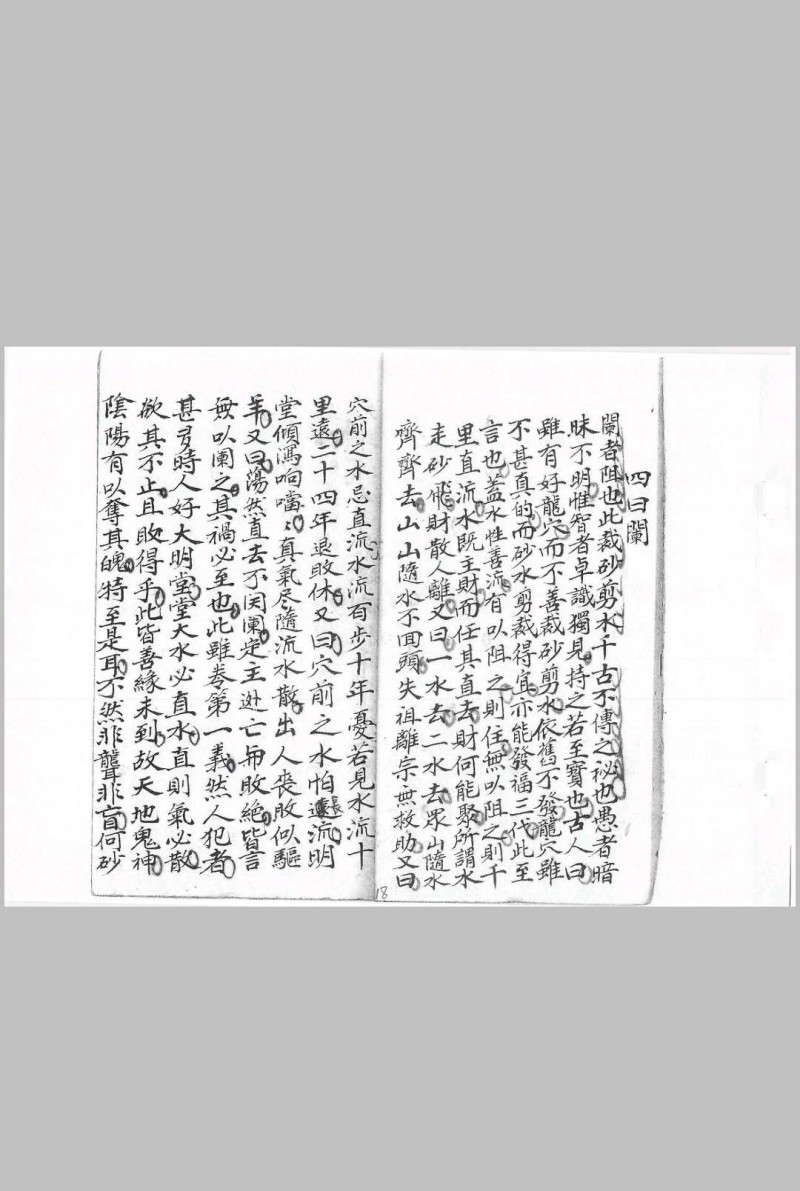 四曰闌
闌者阻也此裁砂剪水千古不傳之祕也愚者暗
昧不明惟智者卓識獨見持之若至寶也古人曰
雖有好龍穴而不善裁砂剪水依舊不發龍穴雖
不甚真的而砂水剪裁得宜亦能發福三代此至
言也蓋水性善流有以阻之則住無以阻之則千
里直流水既主財而任其直去財何能聚所謂水
走砂飛財散人離又曰一水去二水去眾山隨水
齊齊去山山隨水不囬頭失祖離宗無救助又曰
穴前之水忌直流水流百步十年憂若見水流十
里遠二十四年退敗休又曰穴前之水怕長流明
堂傾瀉响噹噹真氣尽隨流水散出人喪敗似驅
羊又曰蕩然直去不関闌定主逃亡而敗絕皆言
無以闌之其禍必至也此雖卷第一義然人犯者
甚多時人好大明堂堂大水必直水直則氣必散
欲其不止且敗得乎此皆善緣未到故天地鬼神
陰陽有以奪其魄特至是耳不然非聾非盲何砂
18